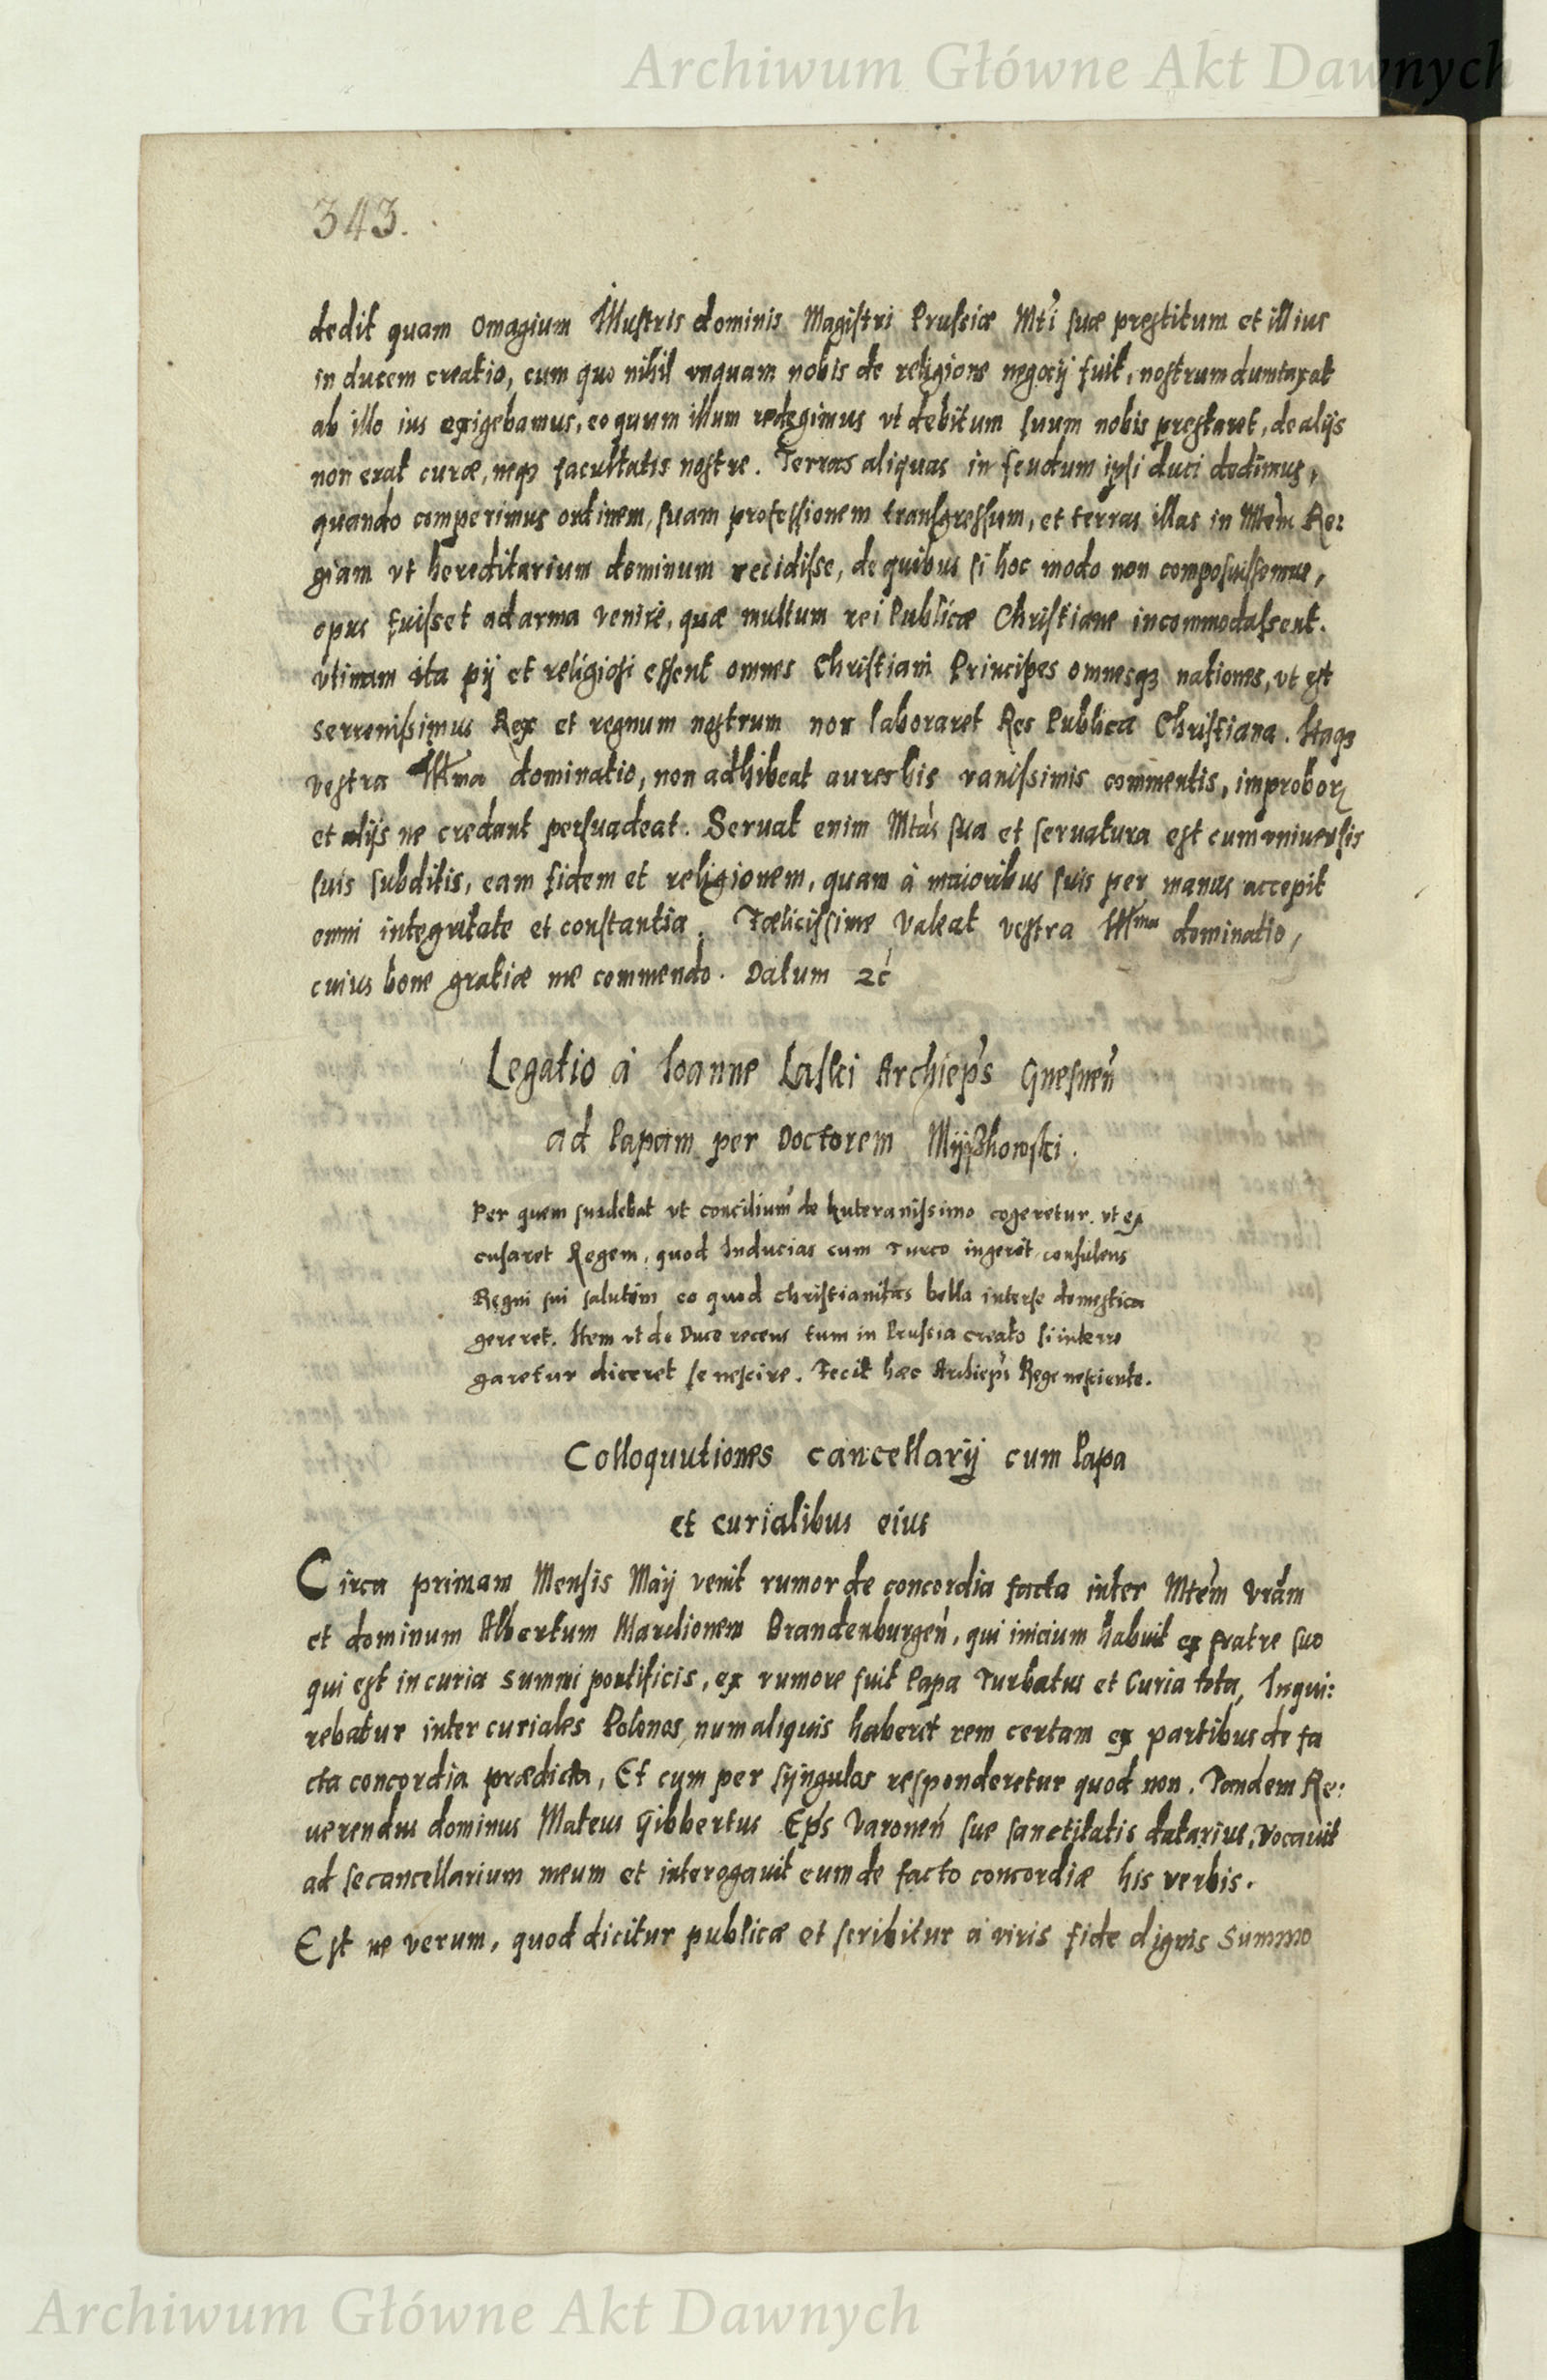 Archiwum Główne Akt Dawnych
343.
dedit quam omagium Illustris dominis Magistri Prussiæ Mti suæ prestitum et illius
in ducem creatio, cum quo nihil vnquam nobis de religione negocij fuit, nostrum dumtaxat
ab illo ius exigebamus, eo quum illum redegimus vt debitum suum nobis prestaret, de alijs
non erat curæ, neqȝ facultatis nostre. Terras aliquas in feudum ipsi duci dedimus,
quando comperimus ordinem, suam professionem transgressum, et terras illas in Mtem Re:
giam vt hereditarium dominum recidisse, de quibus si hoc modo non composuissemus,
opus fuisset ad arma venire, quæ multum rei Publicæ Christiane incommodassent.
vtinam ita pij et religiosi essent omnes Christiani Principes omnesqȝ nationes, vt est
serrenissimus Rex et regnum nostrum non laboraret Res Publica Christiana. Itaqȝ
vestra Illma dominatio, non adhibeat aures his vanissimis commentis, improborꝝ
et alijs ne credant persuadeat. Seruat enim Mtas sua et seruatura est cum vniuersis
suis subditis, eam fidem et religionem, quam à maioribus suis per manus accepit
omni integritate et constantia. Fœlicissime Valeat vestra Illma dominatio,
cuius bone gratiæ me commendo. Datum 2c
Legatio à Ioanne Laski Archieps Gnesnen
ad Papam per Doctorem Mÿßkowski.
Per quem suadebat vt concilium de Luteranissimo cogeretur. vt ex
cusaret Regem, quod Inducias cum Turco ingerit consulens
Regni sui salutem eo quod christianitas bella interse domestica
gereret. Item vt de Duce recens tum in Prussia creato si interro
garetur diceret se nescire. Fecit hæc Archieps Rege nesciente.
Colloquutiones cancellarij cum Papa
et curialibus eius
Circa primam Mensis Maij venit rumor de concordia facta inter Mtem Vram
et dominum Albertum Marchionem Brandenburgen, qui inicium habuit ex fratre suo
qui est in curia summi pontificis, ex rumore fuit Papa Turbatus et Curia tota, Inqui:
rebatur inter curiales Polonos, num aliquis haberet rem certam ex partibus de fa
cta concordia prædicta, Et cum per syngulos responderetur quod non. Tandem Re:
uerendus dominus Mateus Gibbertus Eps Varonen sue sanctitatis datarius, vocauit
ad se cancellarium meum et interogauit eum de facto concordiæ his verbis.
Est ne verum, quod dicitur publicæ et scribitur à viris fide dignis Summo
Archiwum Główne Akt Dawnych